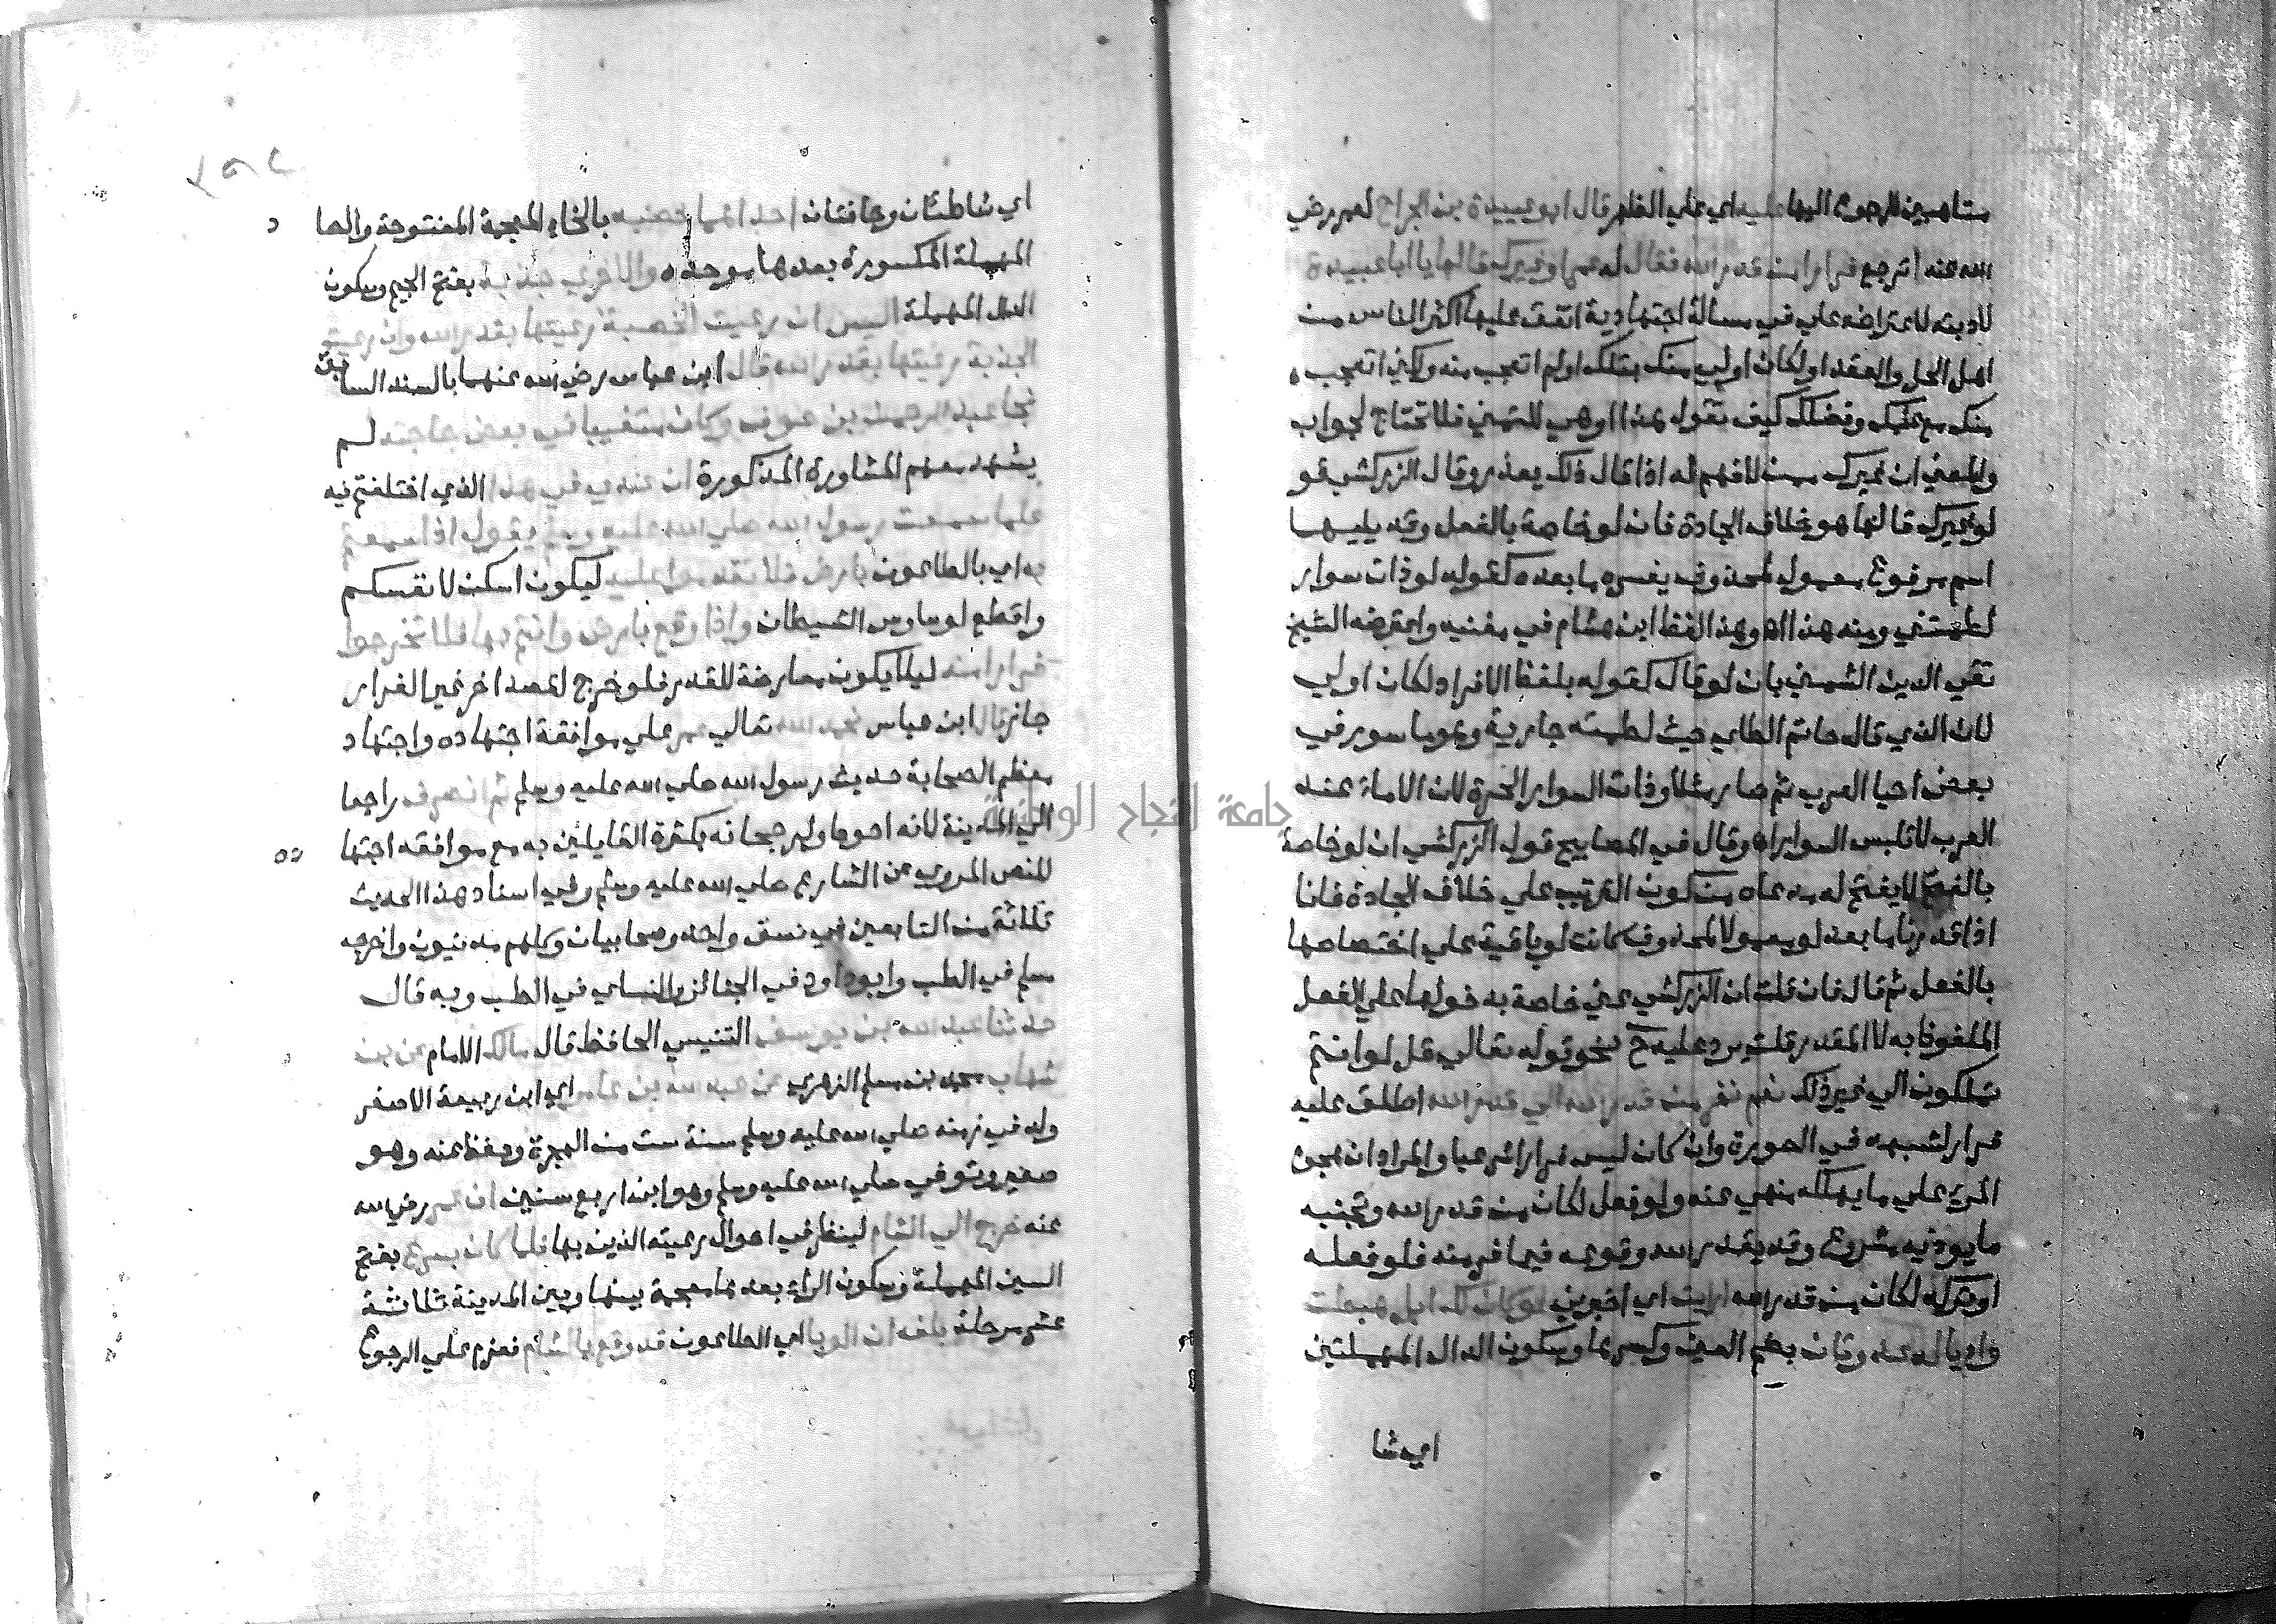 متاهبين للرجوع اليها عليه اي علي الظهر قال ابو عبيدة بن الجراح لعمر رضي
الله عنه اترجع فرارا من قدر الله فقال له عمر لو غيرك قالها يا ابا عبيدة
لادبته لاعتراضه علي في مسالة اجتهادية اتفق عليها اكثر الناس من
اهل الحل والعقد او لكان اولي منك بتلك او لم اتعجب منه ولكني اتعجب
منك مع علمك وفضلك كيف تقول هذا او هي للتمني فلا تحتاج لجواب
والمعني ان غيرك ممن لا فهم له اذا قال ذلك يعذر وقال الزركشي غو
لو غيرك قالها هو خلاف الجادة فان لو خاصة بالفعل وقد يليها
اسم مرفوع معمول لمحذوف يفسره ما بعده كقوله لو ذات سوار
لطمتني ومنه هذا اه وهذا لفظ ابن هشام في مغنيه واعترضه الشيخ
تقي الدين الشمني بان لو قال كقوله بلفظ الافراد لكان اولي
لان الذي قال حاتم الطاي حيث لطمته جارية وهو ماسور في
بعض احيا العرب ثم صار مثلا وذات السوار الحرة لان الاماء عند
العرب لا تلبس السوار اه وقال في المصابيح قول الزركشي ان لو خاصة
بالفعل لا يفتح له مدعاه من كون التركيب علي خلاف الجادة فانا
اذا قدرنا ما بعد لو معمولا لمحذوف كانت لو باقية علي اختصاصها
بالفعل ثم قال فان قلت ان الزركشي عني خاصة بدخولها علي الفعل
الملفوظ به لا المقدر قلت يرد عليه ح نحو قوله تعالي قل لو انتم
تملكون الي غير ذلك نعم نفر من قدر الله الي قدر الله اطلق عليه
فرارا لشبهه في الصورة وان كان ليس فرارا شرعيا والمراد ان هجوم
المرء علي ما يهلكه منهي عنه ولو فعل لكان من قدر الله وتجنبه
ما يوذيه مشروع وقد يقدر الله وقوعه فيما فر منه فلو فعله
او تركه لكان من قدر الله ارايت اي اخبرني لو كان لك ابل هبطت
واديا له عدوتان بضم العين وكسرها وسكون الدال المهملتين
اي شا
٢٥٤
اي شاطئان وحافتان احداهما خصبه بالخاء المعجمة المفتوحة والصا د
المهملة المكسورة بعدها موحده والاخري جدبة بفتح الجيم وسكون
الدال المهملة اليس ان رعيت الخصبة رعيتها بقدر الله وان رعيت
الجدبة رعيتها بقدر الله قال ابن عباس رضي الله عنهما بالسند السابق
فجا عبد الرحمن بن عوف وكان متغيبا في بعض حاجته لم
يشهد معهم المشاورة المذكورة ان عندي في هذا الذي اختلفتم فيه
علما سمعت رسول الله صلي الله عليه وسلم يقول اذا سمعتم
به اي بالطاعون بارض فلا تقدموا عليه ليكون اسكن لانفسكم
واقطع لوساوس الشيطان واذا وقع بارض وانتم بها فلا تخرجوا
فرارا منه ليلا يكون معارضة للقدر فلو خرج لقصد اخر غير الفرار
جاز قال ابن عباس فحمد الله تعالي عمر علي موافقة اجتهاده واجتهاد
معظم الصحابة حديث رسول الله صلي الله عليه وسلم ثم انصرف راجعا
الي المدينة لانه احوط ولرجحانه بكثرة القايلين به مع موافقه اجتها ده
للنص المروي عن الشارع صلي الله عليه وسلم وفي اسناد هذا الحديث
ثلاثة من التابعين في نسق واحد وصحابيان وكلهم مدنيون واخرجه
مسلم في الطب وابو داود في الجنائز والنساي في الطب وبه قال
حدثنا عبد الله بن يوسف التنيسي الحافظ قال مالك الامام عن بن
شهاب محمد بن مسلم الزهري عن عبد الله بن عامر اي ابن ربيعة الاصغر
ولد في زمنه صلي الله عليه وسلم سنة ست من الهجرة وحفظ عنه وهو
صغير وتوفي صلي الله عليه وسلم وهو ابن اربع سنين ان عمر رضي الله
عنه خرج الي الشام لينظر في احوال رعيته الذين بها فلما كان بسرغ بفتح
السين المهملة وسكون الراء بعدها معجمة بينها وبين المدينة ثلاثة
عشر مرحلة بلغه ان الوبا اي الطاعون قد وقع بالشام فعزم علي الرجوع
جامعة النجاح الوطنية